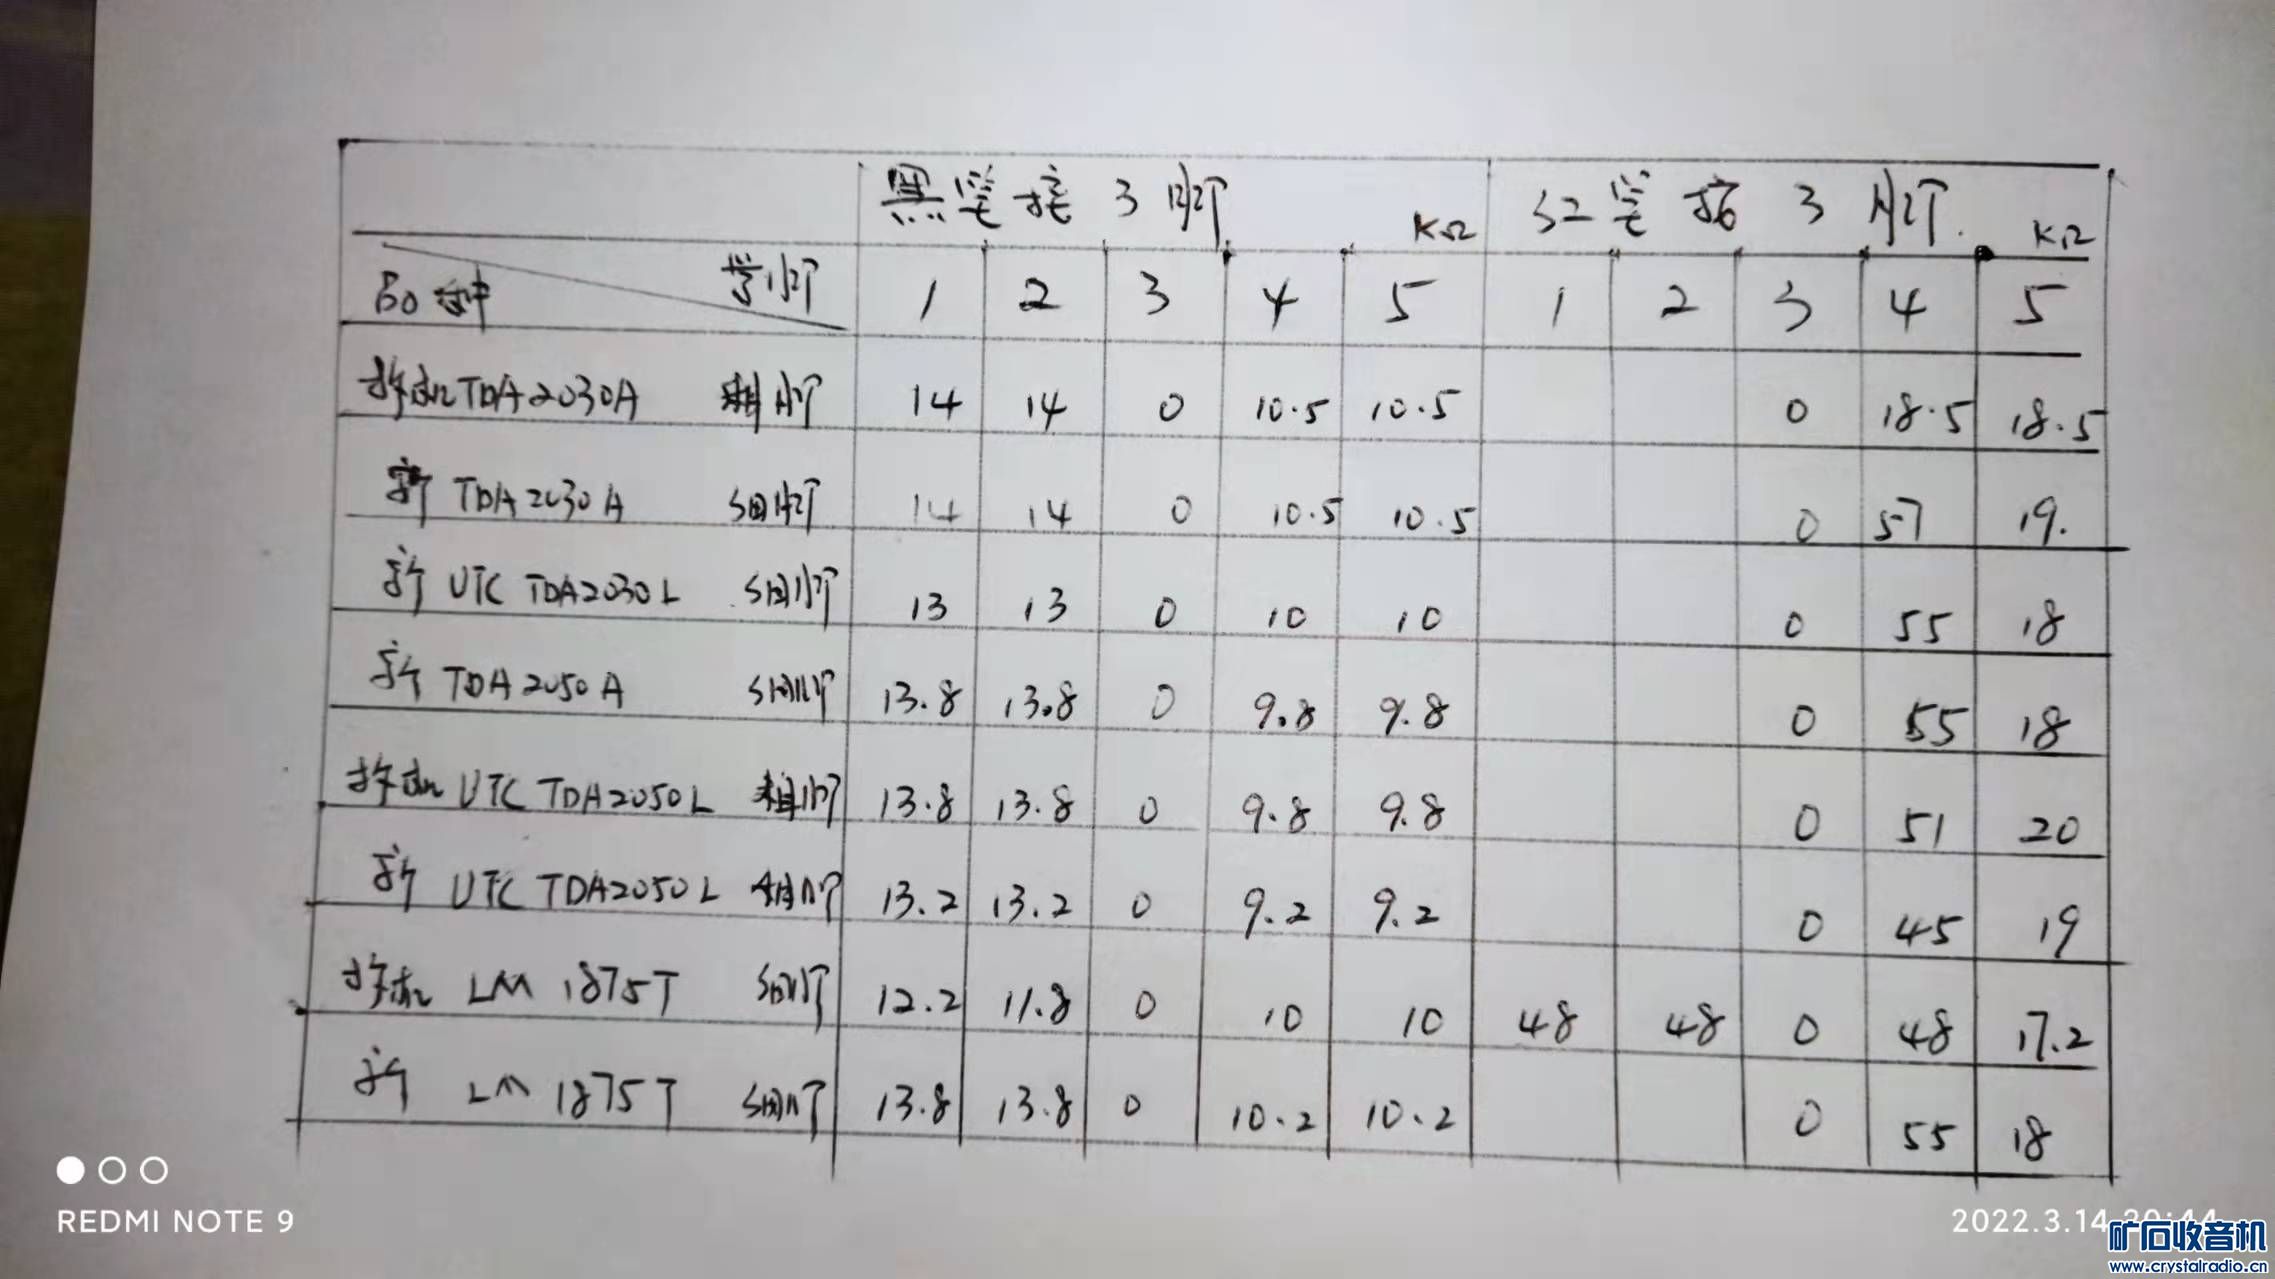 黑笔接3脚 KΩ 红笔接3脚 KΩ
品种 管脚 1 2 3 4 5 1 2 3 4 5
拆机TDA2030A 粗脚 14 14 0 10.5 10.5 0 18.5 18.5
新 TDA2030A 细脚 14 14 0 10.5 10.5 0 57 19.
新 UTC TDA2030L 细脚 13 13 0 10 10 0 55 18
新 TDA2050A 细脚 13.8 13.8 0 9.8 9.8 0 55 18
拆机 UTC TDA2050L 粗脚 13.8 13.8 0 9.8 9.8 0 51 20
新 UTC TDA2050L 粗脚 13.2 13.2 0 9.2 9.2 0 45 19
拆机 LM 1875T 细脚 12.2 11.8 0 10 10 48 48 0 48 17.2
新 LM 1875T 细脚 13.8 13.8 0 10.2 10.2 0 55 18
REDMI NOTE 9
2022.3.14 20:44
矿石收音机
www.crystalradio.cn